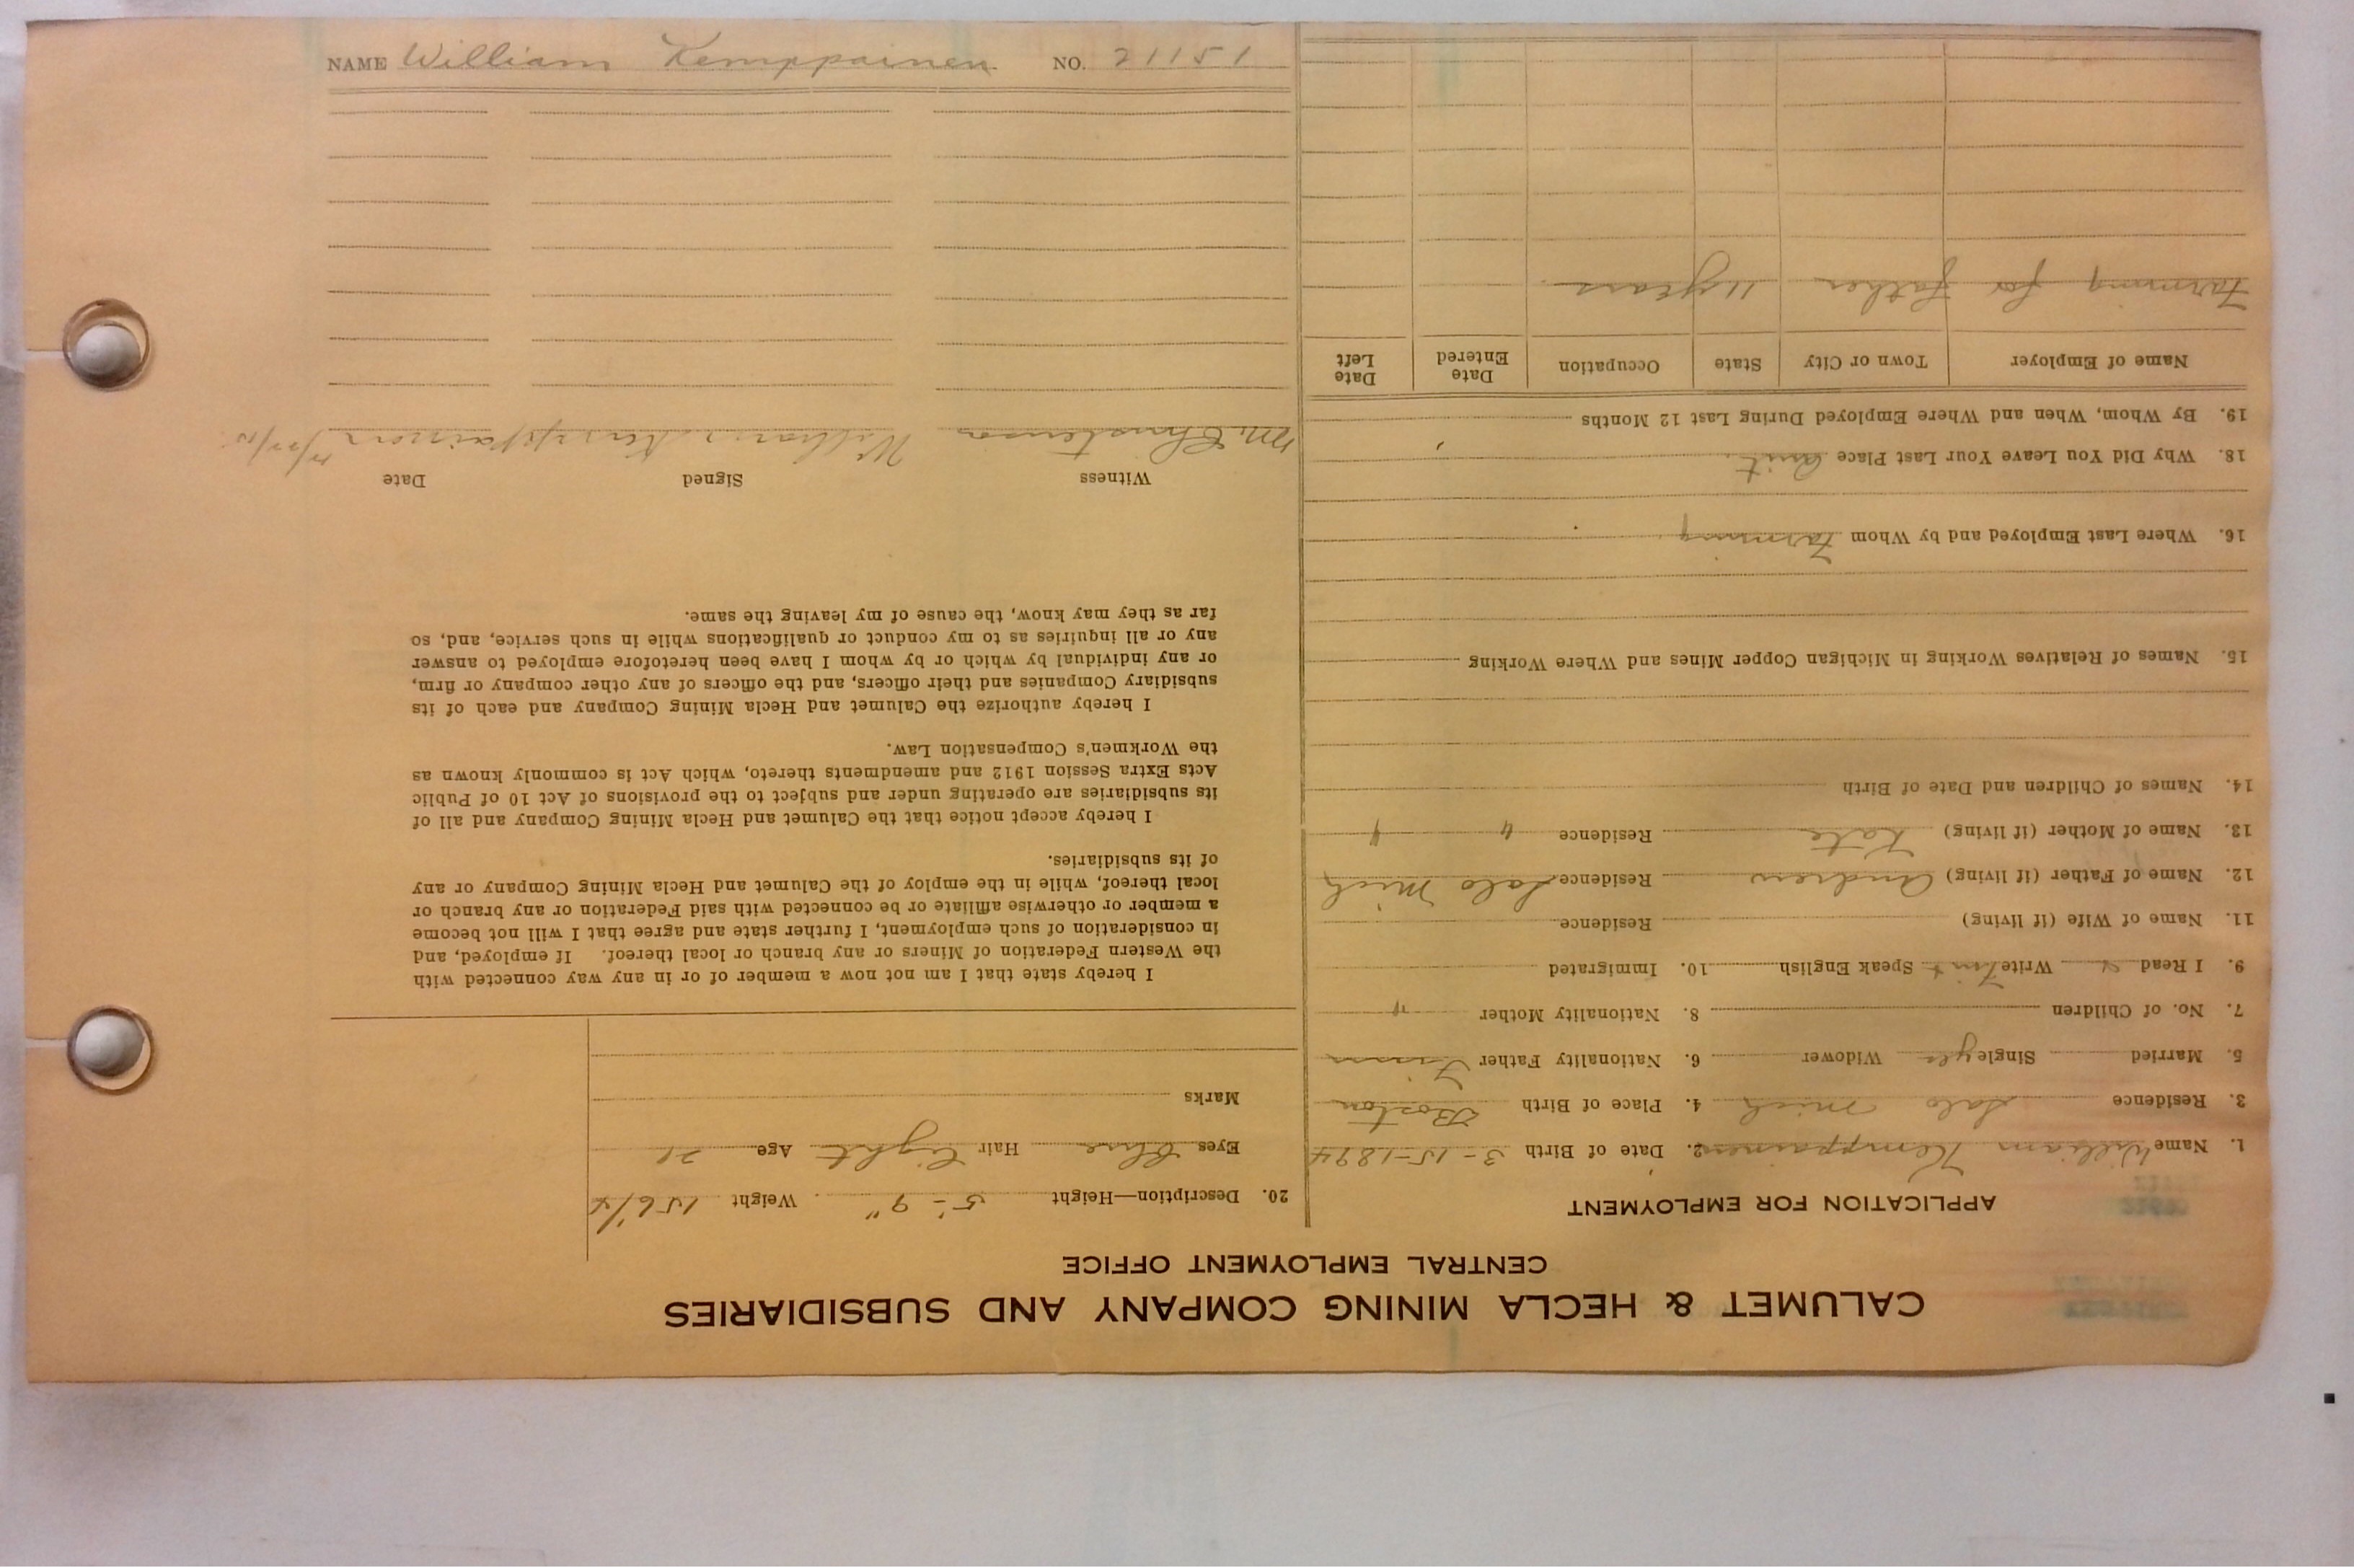 CALUMET & HECLA MINING COMPANY AND SUBSIDIARIES
CENTRAL EMPLOYMENT OFFICE
APPLICATION FOR EMPLOYMENT
1. Name William Kemppainen 2. Date of Birth 3-15-1894
3. Residence Salo Mich 4. Place of Birth Boston
5. Married Single yes Widower 6. Nationality Father Finn
7. No. of Children 8. Nationality Mother "
9. I Read Write Speak English 10. Immigrated
11. Name of Wife (if living) Residence
12. Name of Father (if living) Andrew Residence Salo Mich
13. Name of Mother (if living) Kate Residence " "
14. Names of Children and Date of Birth
15. Names of Relatives Working in Michigan Copper Mines and Where Working
16. Where Last Employed and by Whom Farming
18. Why Did You Leave Your Last Place Quit
19. By Whom, When and Where Employed During Last 12 Months
Name of Employer Town or City State Occupation Date Entered Date Left
Farming for father 11 years
20. Description—Height 5'-9" Weight 156 1/4
Eyes Blue Hair Light Age 21
Marks
I hereby state that I am not now a member of or in any way connected with
the Western Federation of Miners or any branch or local thereof. If employed, and
in consideration of such employment, I further state and agree that I will not become
a member or otherwise affiliate or be connected with said Federation or any branch or
local thereof, while in the employ of the Calumet and Hecla Mining Company or any
of its subsidiaries.
I hereby accept notice that the Calumet and Hecla Mining Company and all of
its subsidiaries are operating under and subject to the provisions of Act 10 of Public
Acts Extra Session 1912 and amendments thereto, which Act is commonly known as
the Workmen's Compensation Law.
I hereby authorize the Calumet and Hecla Mining Company and each of its
subsidiary Companies and their officers, and the officers of any other company or firm,
or any individual by which or by whom I have been heretofore employed to answer
any or all inquiries as to my conduct or qualifications while in such service, and, so
far as they may know, the cause of my leaving the same.
Witness Signed Date
William Kemppainen
NAME William Kemppainen NO. 21151